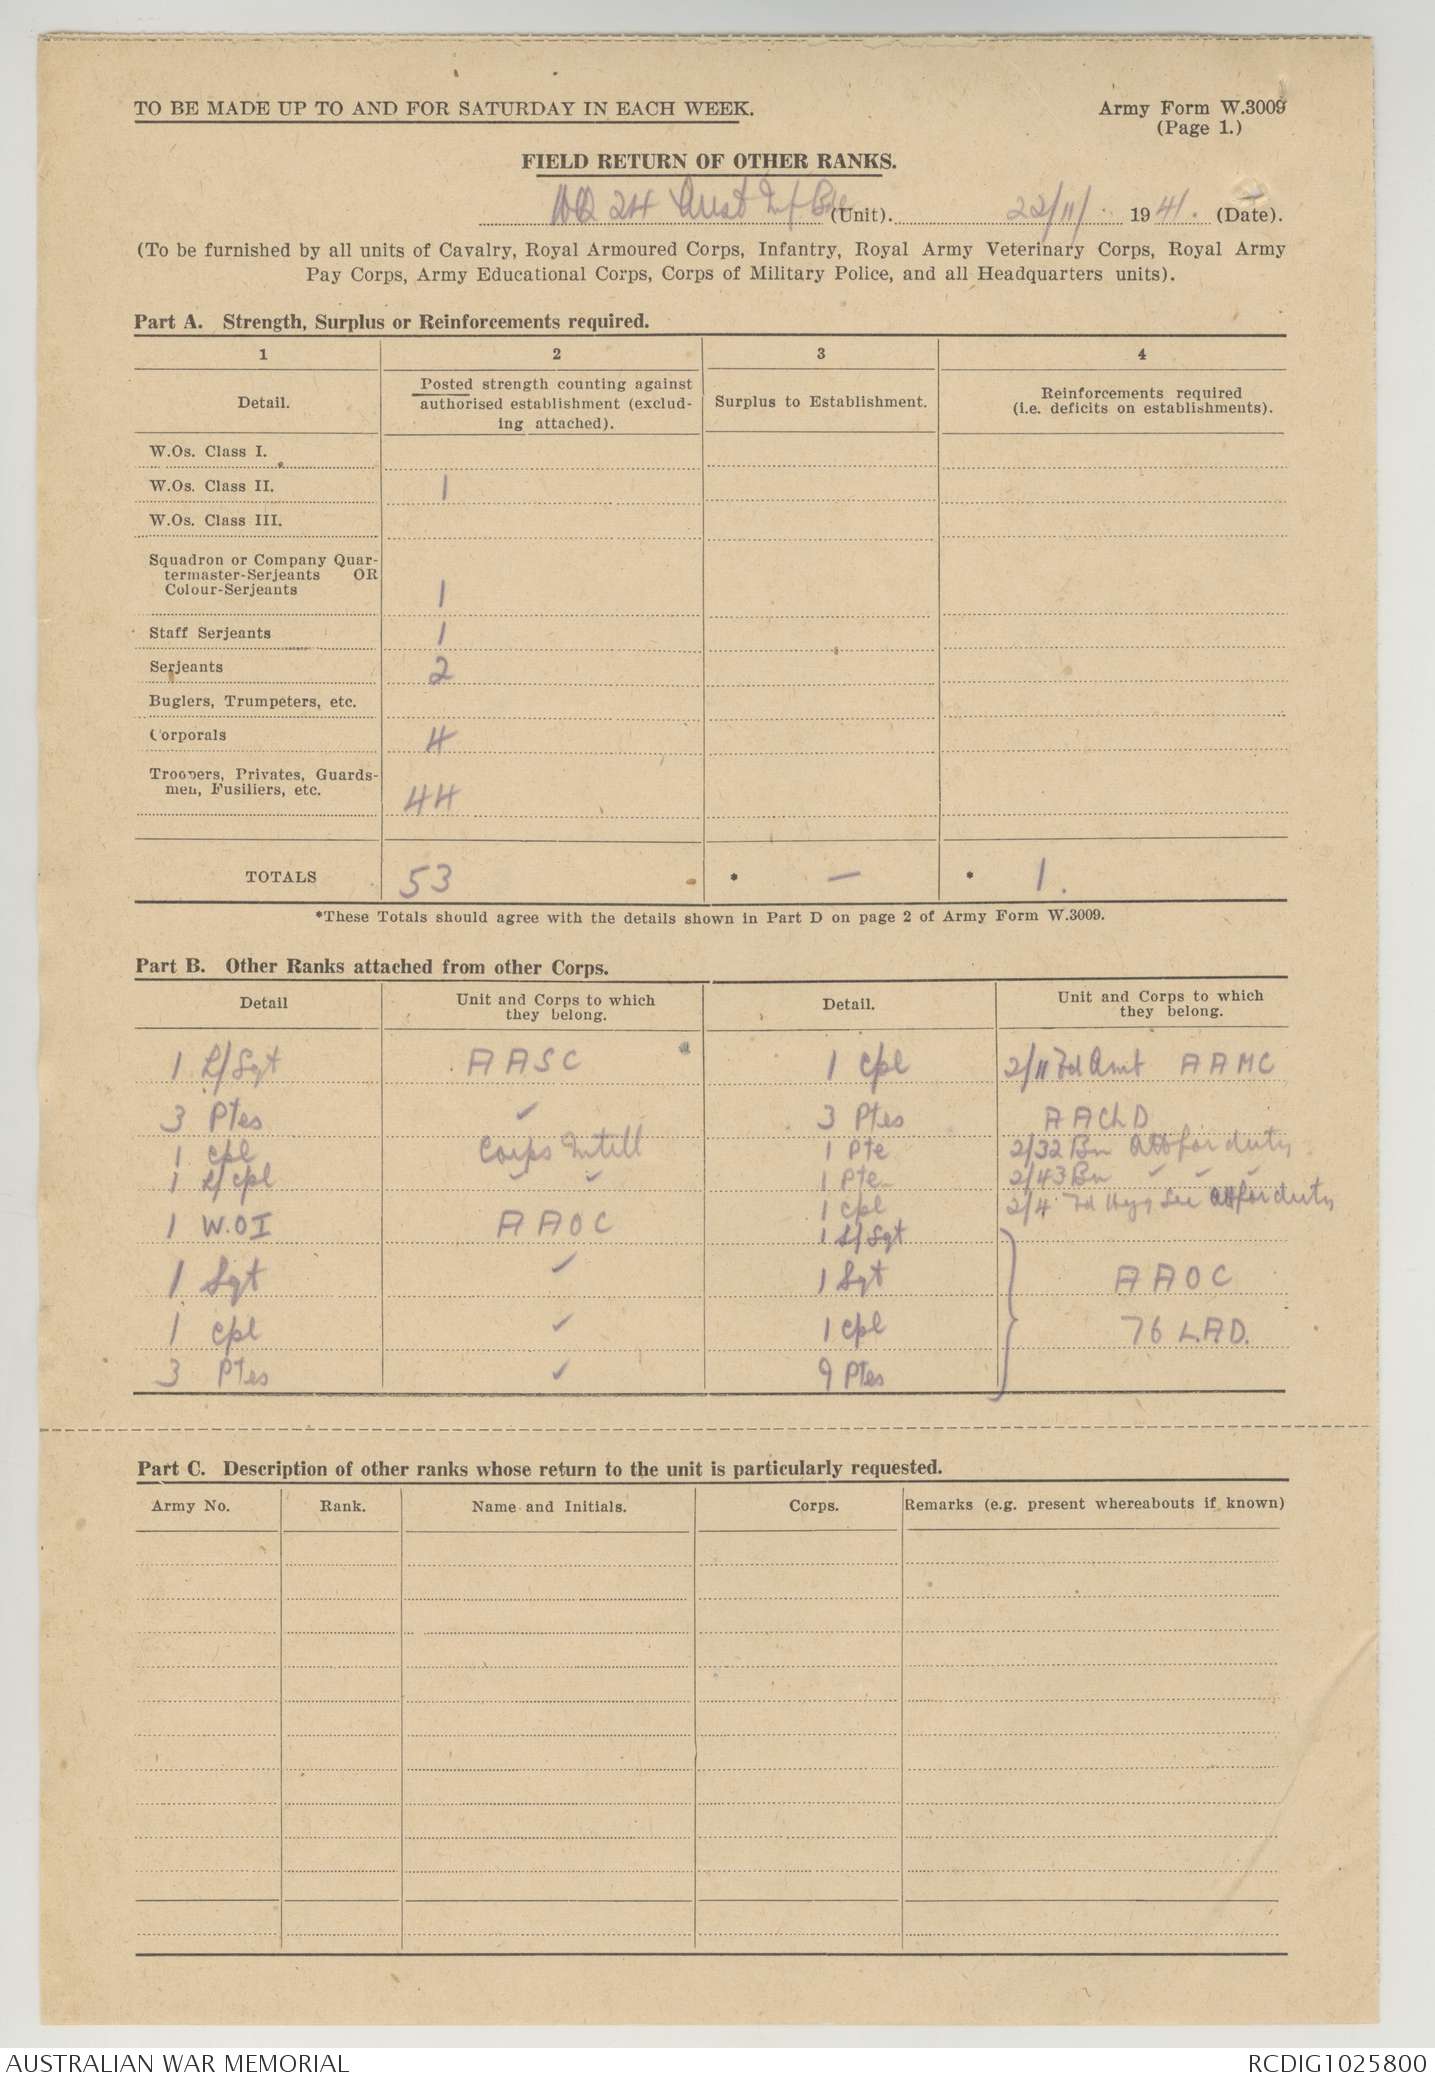 TO BE MADE UP TO AND FOR SATURDAY IN EACH WEEK.
Army Form W.3009
(Page 1.)
FIELD RETURN OF OTHER RANKS.
HQ 24 Aust Inf Bde (Unit). 22/11/ 1941. (Date).
(To be furnished by all units of Cavalry, Royal Armoured Corps, Infantry, Royal Army Veterinary Corps, Royal Army
Pay Corps, Army Educational Corps, Corps of Military Police, and all Headquarters units).
Part A. Strength, Surplus or Reinforcements required.
1 2 3 4
Detail.
Posted strength counting against
authorised establishment (exclud-
ing attached).
Surplus to Establishment.
Reinforcements required
(i.e. deficits on establishments).
W.Os. Class I.
W.Os. Class II. 1
W.Os. Class III.
Squadron or Company Quar-
termaster-Serjeants OR
Colour-Serjeants 1
Staff Serjeants 1
Serjeants 2
Buglers, Trumpeters, etc.
Corporals 4
Troopers, Privates, Guards-
men, Fusiliers, etc. 44
TOTALS 53 * — * 1.
*These Totals should agree with the details shown in Part D on page 2 of Army Form W.3009.
Part B. Other Ranks attached from other Corps.
Detail
Unit and Corps to which
they belong.
Detail.
Unit and Corps to which
they belong.
1 L/Sgt AASC 1 Cpl 2/11 Fd Amb AAMC
3 Ptes ✓ 3 Ptes AAChD
1 Cpl Corps Intell 1 Pte 2/32 Bn Att for duty
1 L/Cpl ✓ ✓ 1 Pte 2/43 Bn ✓ ✓ ✓
1 Cpl 2/4 Fd Hyg Sec Att for duty
1 W.O I AAOC 1 L/Sgt
1 Sgt ✓ 1 Sgt AAOC
1 Cpl ✓ 1 Cpl 76 L.A.D.
3 Ptes ✓ 9 Ptes
Part C. Description of other ranks whose return to the unit is particularly requested.
Army No. Rank. Name and Initials. Corps. Remarks (e.g. present whereabouts if known)
AUSTRALIAN WAR MEMORIAL
RCDIG1025800